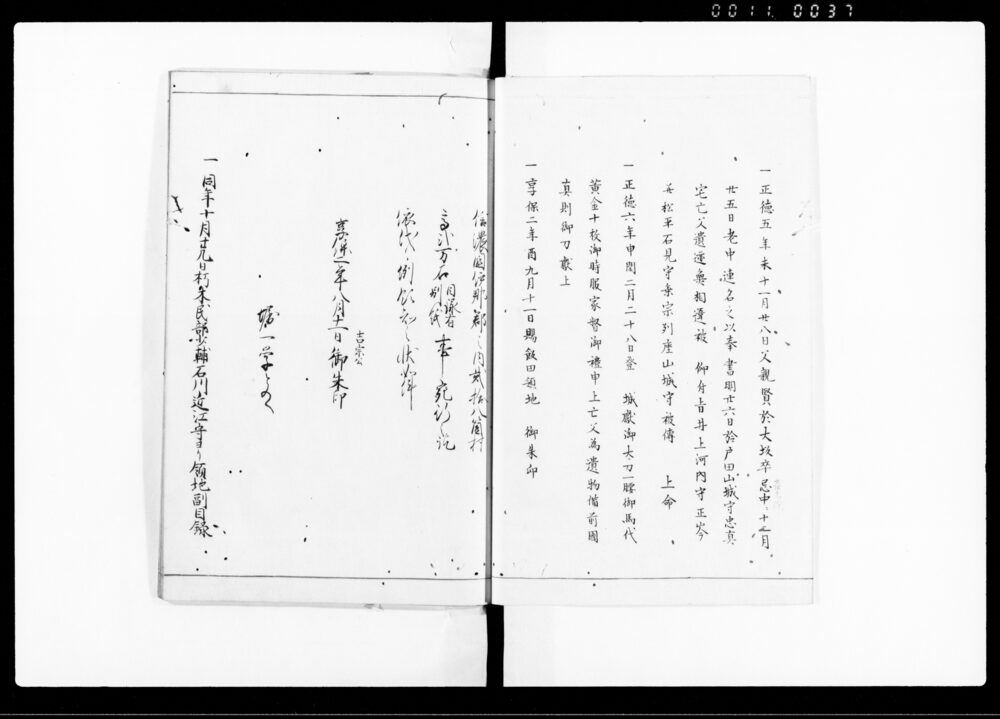 0011 0037
一正徳五年未十一月廿八日父親賢於大坂卒忌中十二月
廿五日老中連名之以奉書明廿六日於戸田山城守忠真
宅亡父遺迹無相違被 仰付旨井上河内守正岑
并松平石見守乗宗列座山城守被傳 上命
一正徳六年申閏二月二十八日登 城獻御太刀一腰御馬代
黄金十枚御時服家督御禮申上亡父為遺物備前國
真則御刀獻上
一享保二年酉九月十一日賜飯田領地 御朱印
信濃國伊那郡之内貳拾八箇村
高貳万石 目録在別紙 事宛行之訖
依代々例領知之状如件
享保二年八月十一日御朱印
吉宗公
堀一学とのへ
一同年十月 日朽木民部少輔石川近江守より領地副目録